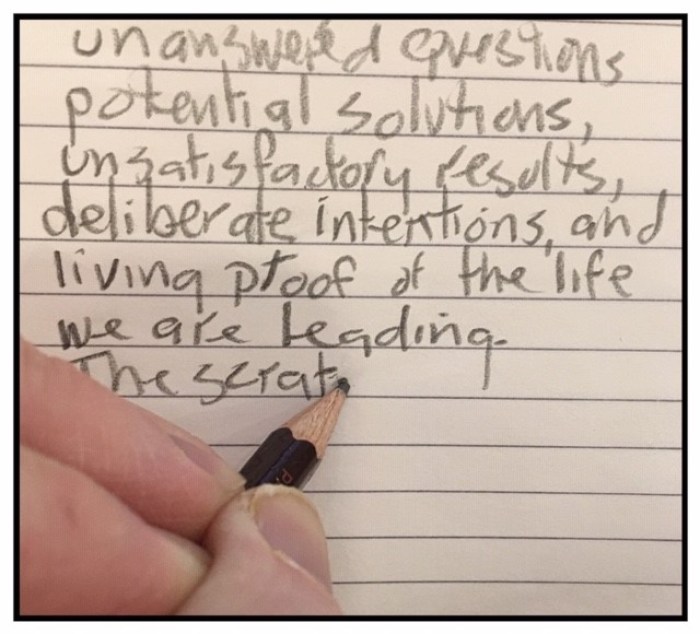 unanswered questions
potential solutions,
unsatisfactory results,
deliberate intentions, and
living proof of the life
we are leading.
The scrat